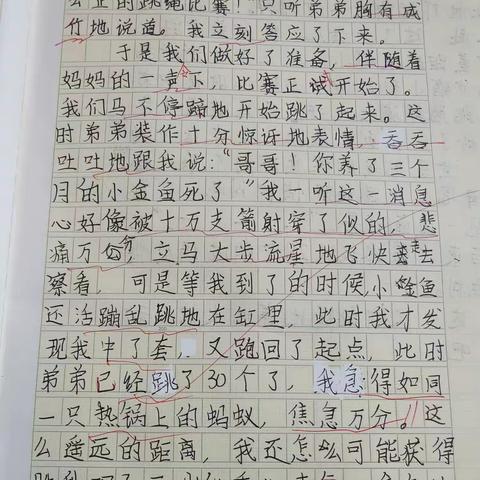 公正的跳绳比赛！"只听弟弟胸有成
竹地说道。我立刻答应了下来。
于是我们做好了准备，伴随着
妈妈的一声下，比赛正试开始了。
我们马不停蹄地开始跳了起来。这
时弟弟装作十分惊讶地表情，吞吞
吐吐地跟我说："哥哥！你养了三个
月的小金鱼死了"我一听这一消息
心好像被十万支箭射穿了似的，悲
痛万分，立马大步流星地飞快走去
察看，可是等我到了的时候，小金鱼
还活蹦乱跳地在缸里，此时我才发
现我中了套，又跑回了起点，此时
弟弟已经跳了30个了，我急得如同
一只热锅上的蚂蚁，焦急万分。这
么遥远的距离，我还怎么可能获得